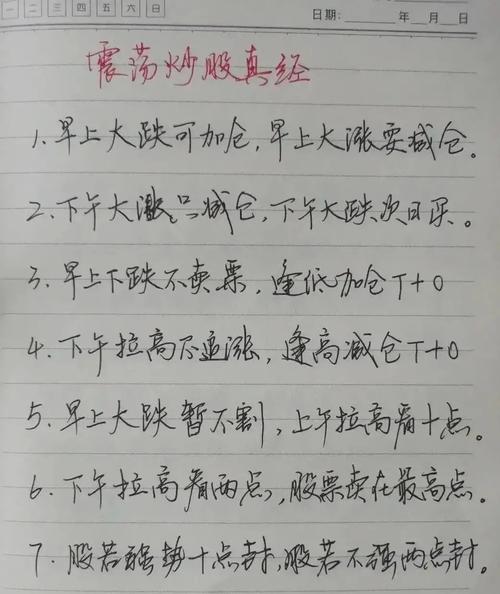 一 二 三 四 五 六 日
日期: 年 月 日
震荡炒股真经
1、早上大跌可加仓，早上大涨要减仓。
2、下午大涨只减仓，下午大跌次日买。
3、早上下跌不卖票，逢低加仓T+0
4、下午拉高不追涨，逢高减仓T+0
5、早上大跌暂不割，上午拉高看十点。
6、下午拉高看两点，股票卖在最高点。
7、股若强势十点封，股若不强两点封。